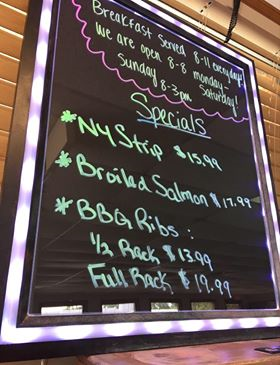 Breakfast Served 8-11 everyday!
We are open 8-8 monday-
Saturday!
Sunday 8-3pm
Specials
*NY Strip $15.99
*Broiled Salmon $17.99
*BBQ Ribs:
1/2 Rack $13.99
Full Rack $19.99